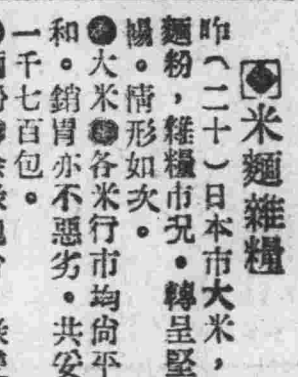 米麵雜糧
昨(二十)日本市大米,
麵粉,雜糧市况。轉呈堅
暢。情形如次。
●大米●各米行市均尙平
和。銷胃亦不惡劣。共妥
一千七百包。